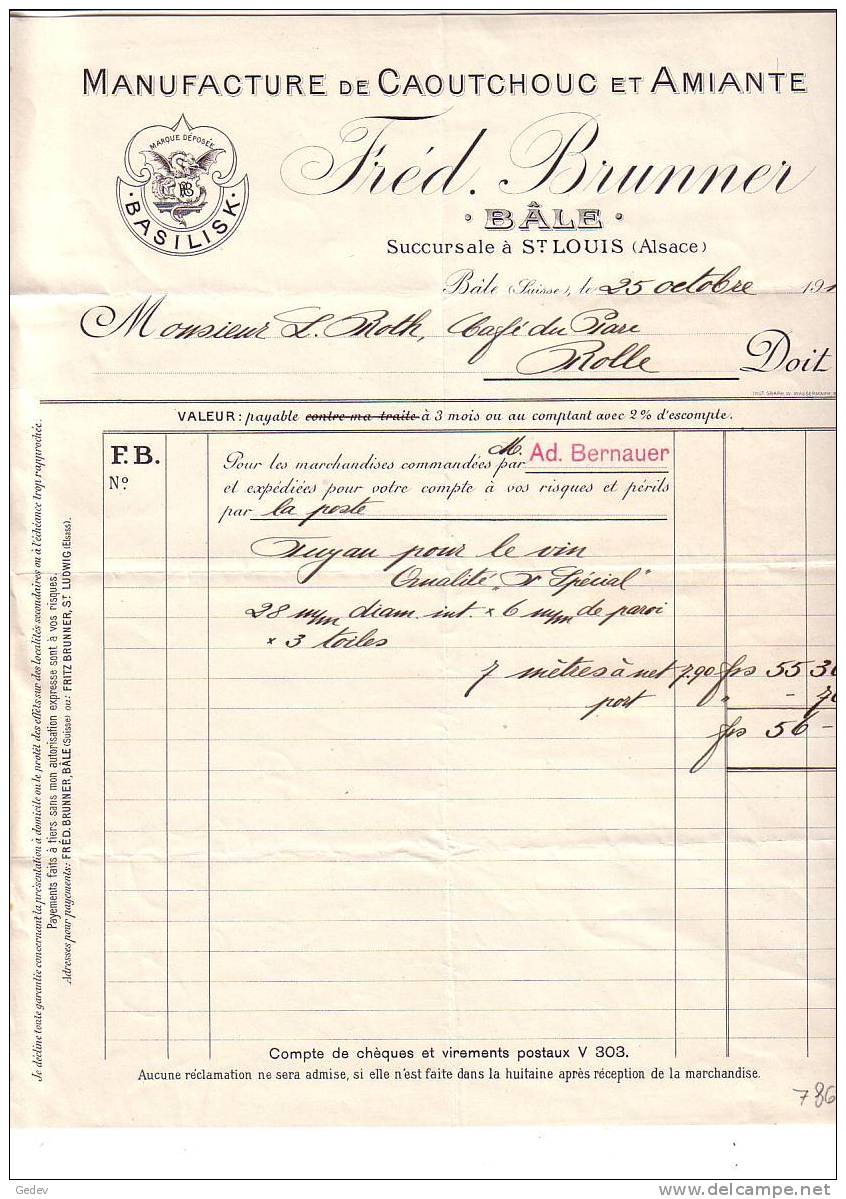 MANUFACTURE DE CAOUTCHOUC ET AMIANTE
MARQUE DÉPOSÉE
FB
· BASILISK ·
Fréd. Brunner
· BÂLE ·
Succursale à ST. LOUIS (Alsace)
Bâle (Suisse), le 25 octobre 191
Monsieur L. Roth, Café du Parc
Rolle Doit
VALEUR : payable contre ma traite à 3 mois ou au comptant avec 2% d'escompte.
F.B.
No
Pour les marchandises commandées par M. Ad. Bernauer
et expédiées pour votre compte à vos risques et périls
par la poste
Tuyau pour le vin
Qualité "Spécial"
28 m/m diam. int. × 6 m/m de paroi
× 3 toiles
7 mètres à net 7.90 frs 55 30
port " - 70
frs 56 -
Je décline toute garantie concernant la présentation à domicile ou le protêt des effets sur des localités secondaires ou à l'échéance trop rapprochée.
Payements faits à tiers sans mon autorisation expresse sont à vos risques.
Adresses pour payements: FRÉD. BRUNNER, BÂLE (Suisse) ou: FRITZ BRUNNER, ST. LUDWIG (Elsass).
Compte de chèques et virements postaux V 303.
Aucune réclamation ne sera admise, si elle n'est faite dans la huitaine après réception de la marchandise.
786
Gedev
delcampe.net